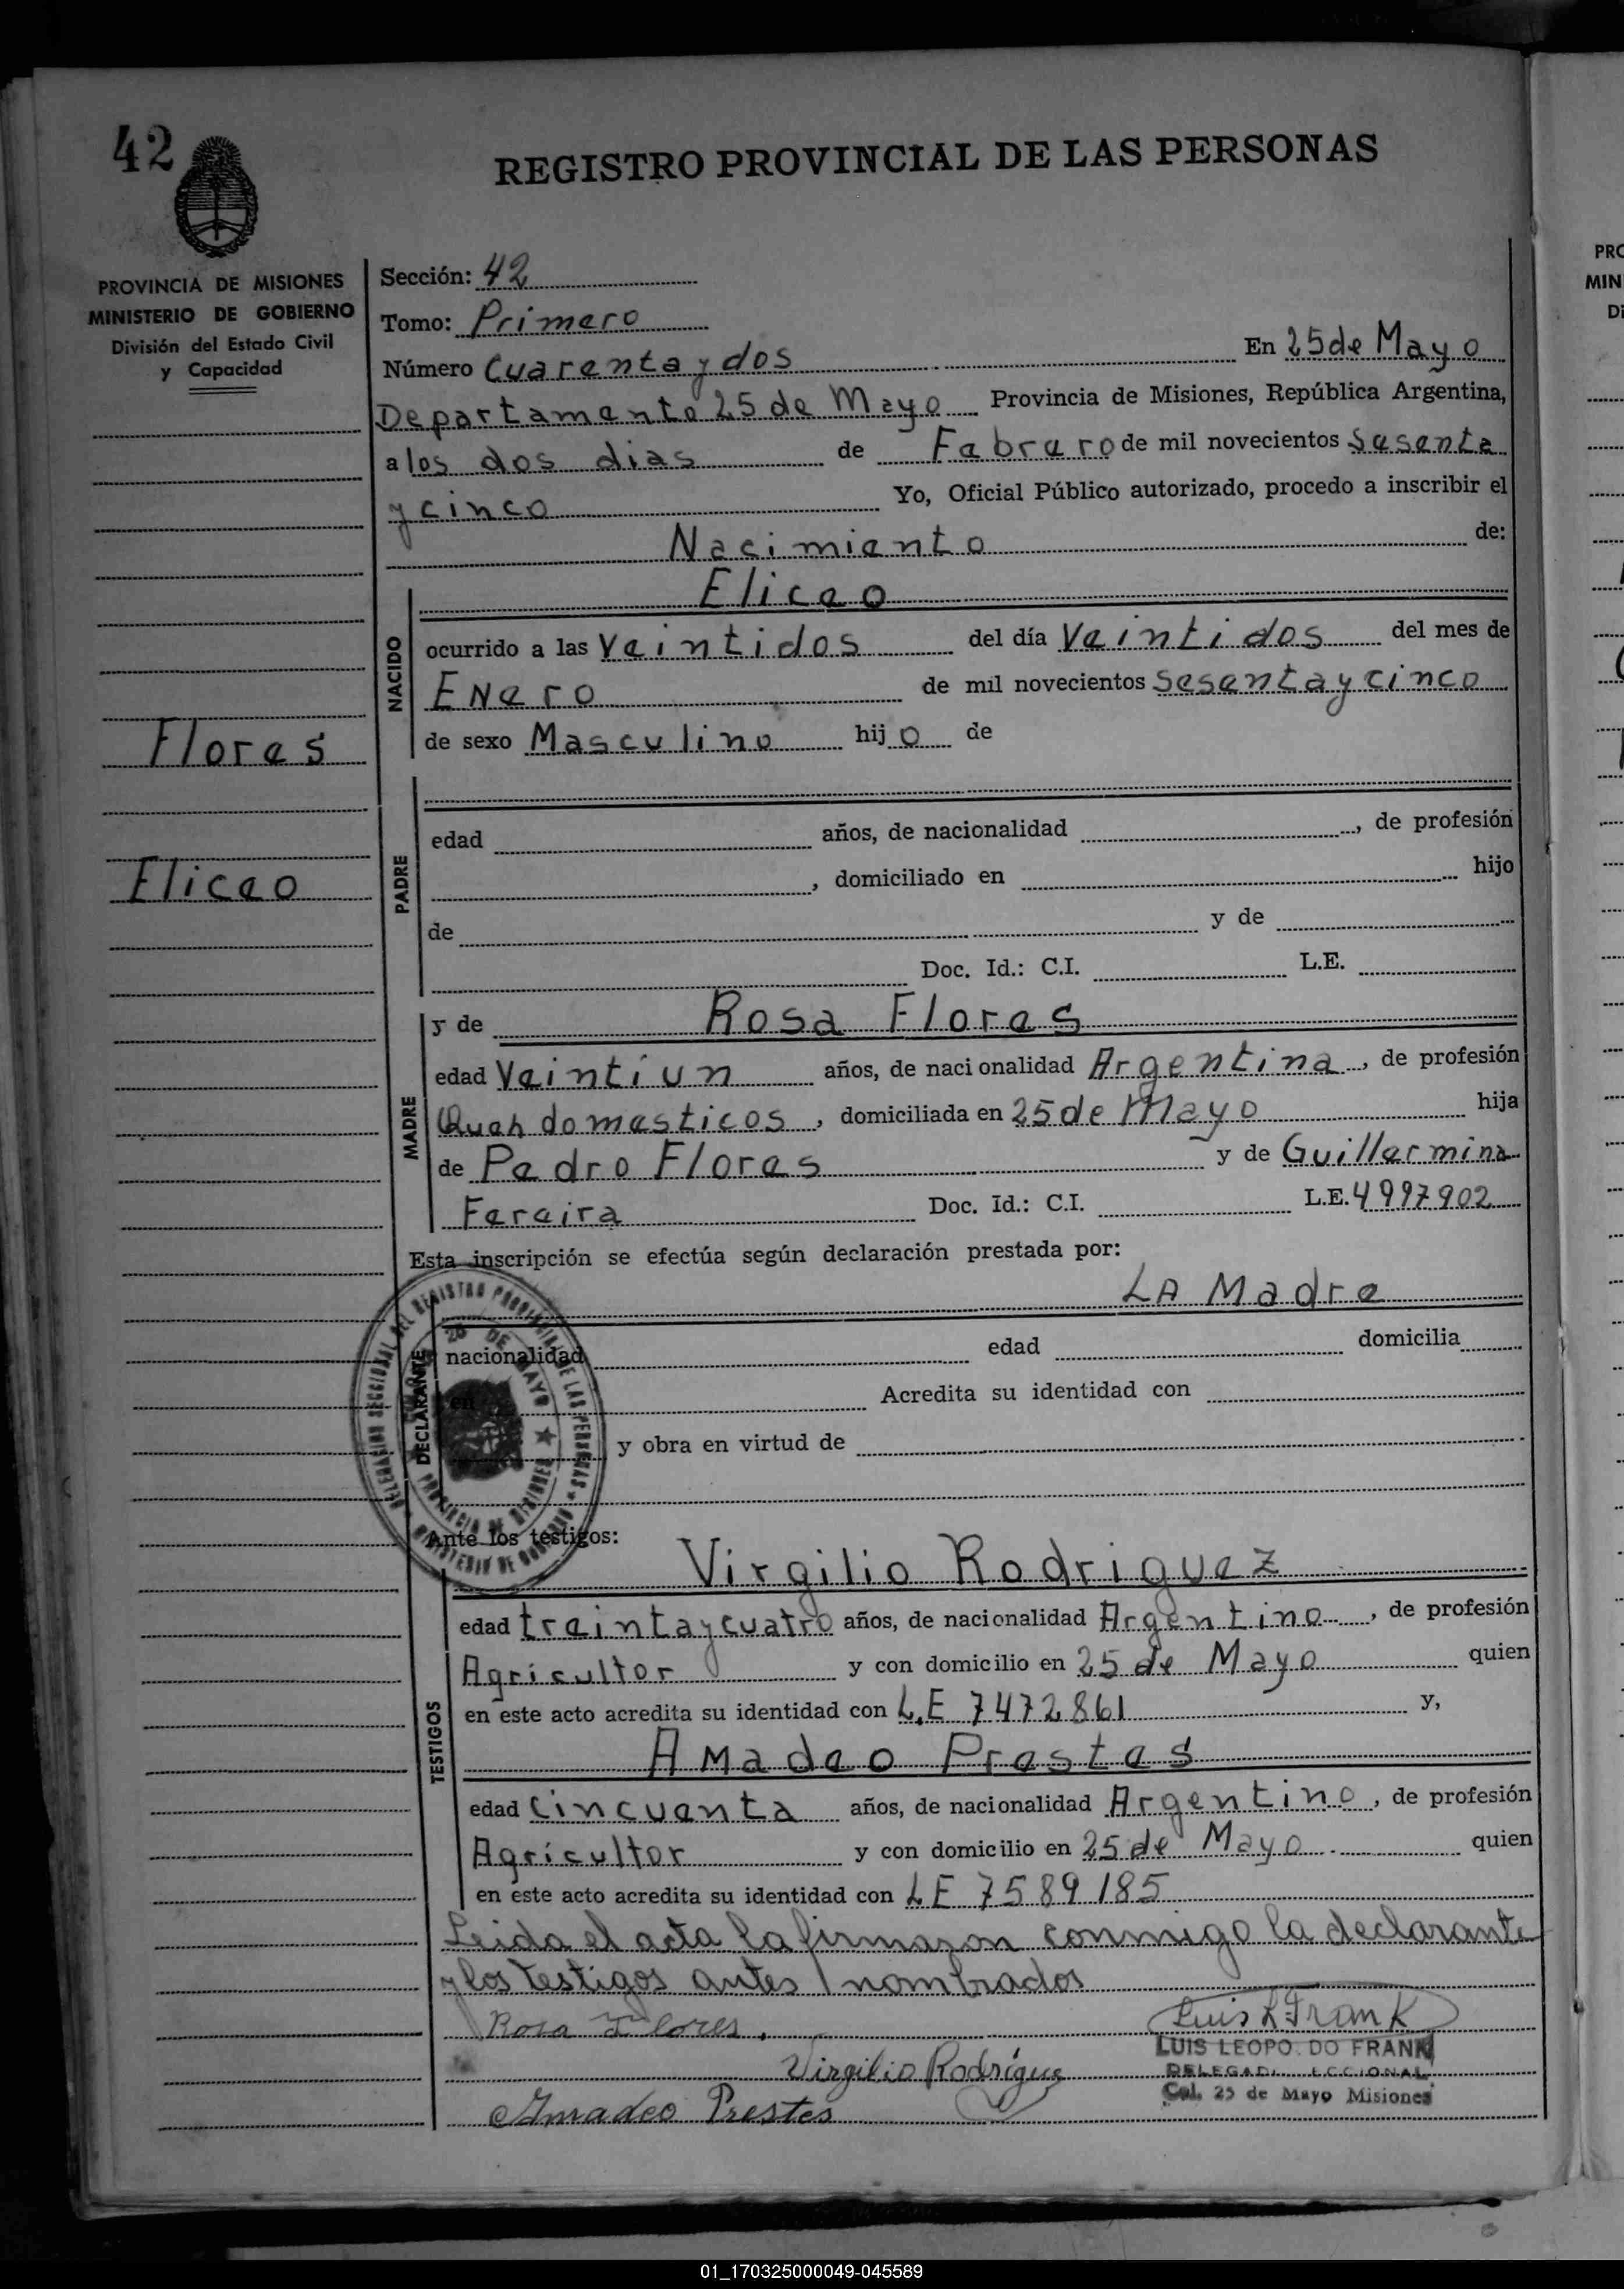 42
REGISTRO PROVINCIAL DE LAS PERSONAS
PROVINCIA DE MISIONES
MINISTERIO DE GOBIERNO
División del Estado Civil
y Capacidad
Flores
Eliceo
Sección: 42
Tomo: Primero
Número Cuarenta y dos En 25 de Mayo
Departamento 25 de Mayo Provincia de Misiones, República Argentina,
a los dos dias de Febrero de mil novecientos Sesenta
y cinco Yo, Oficial Público autorizado, procedo a inscribir el
Nacimiento de:
NACIDO
Eliceo
ocurrido a las Veintidos del día Veintidos del mes de
Enero de mil novecientos Sesenta y cinco
de sexo Masculino hijo de
PADRE
edad años, de nacionalidad , de profesión
, domiciliado en hijo
de y de
Doc. Id.: C.I. L.E.
MADRE
y de Rosa Flores
edad Veintiun años, de nacionalidad Argentina, de profesión
Queh domesticos, domiciliada en 25 de Mayo hija
de Pedro Flores y de Guillermina
Fereira Doc. Id.: C.I. L.E. 4997902
Esta inscripción se efectúa según declaración prestada por:
LA Madre
DECLARANTE
nacionalidad edad domicilia
en Acredita su identidad con
y obra en virtud de
DELEGACION SECCIONAL DEL REGISTRO PROVINCIAL DE LAS PERSONAS
25 DE MAYO
PROVINCIA DE MISIONES
MINISTERIO DE GOBIERNO
Ante los testigos:
TESTIGOS
Virgilio Rodriguez
edad treinta y cuatro años, de nacionalidad Argentino, de profesión
Agricultor y con domicilio en 25 de Mayo quien
en este acto acredita su identidad con L.E 7472861 y,
Amadeo Prestes
edad Cincuenta años, de nacionalidad Argentino, de profesión
Agricultor y con domicilio en 25 de Mayo quien
en este acto acredita su identidad con LE 7589185
Leida el acta la firmaron conmigo la declarante
y los testigos antes nombrados
Rosa Flores.
Luis L Frank
LUIS LEOPO DO FRANK
Virgilio Rodrígue
Col. 25 de Mayo Misiones
Amadeo Prestes
PRO
MIN
Di
01_170325000049-045589